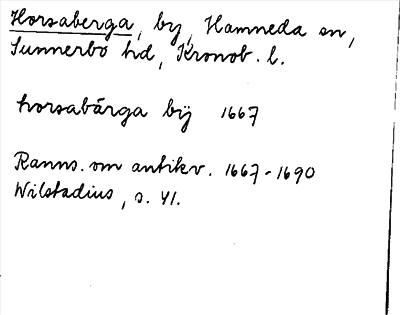 Horsaberga, by, Hamneda sn,
Sunnerbo hd, Kronob. l.
horsabärga bÿ 1667
Ranns. om antikv. 1667-1690
Wilstadius, s. 41.